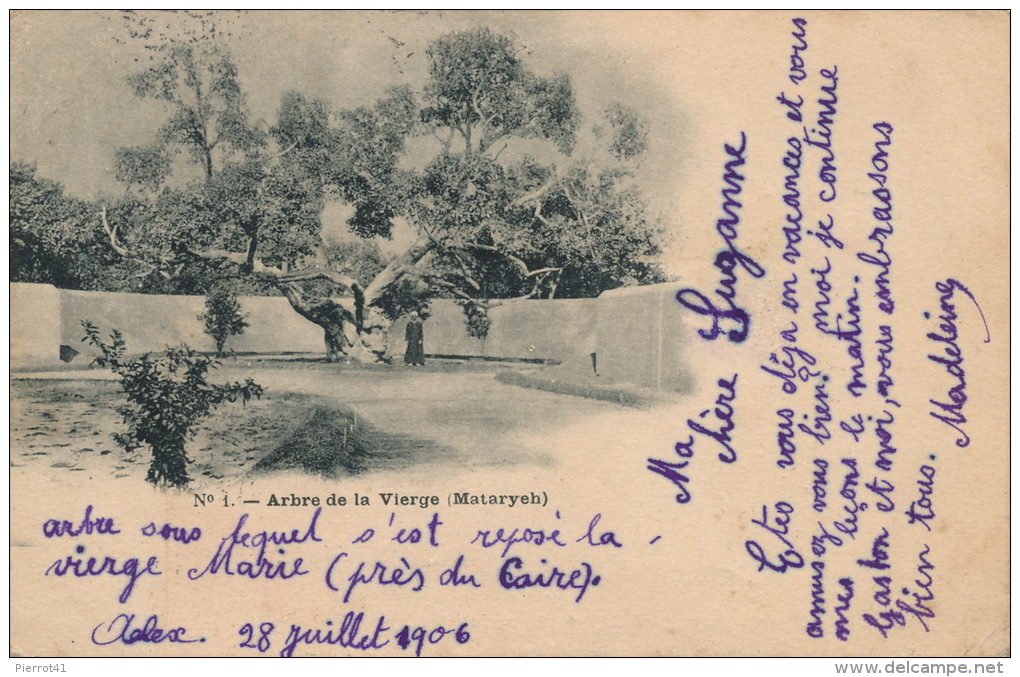 Nº 1. — Arbre de la Vierge (Mataryeh)
arbre sous lequel s'est reposé la
vierge Marie (près du Caire).
Alex. 28 juillet 1906
Ma chère Suzanne
Etes vous déja en vacances et vous
amusez vous bien. moi je continue
mes leçons le matin.
Gaston et moi, vous embrassons
bien tous. Madeleine
Pierrot41
www.delcampe.net